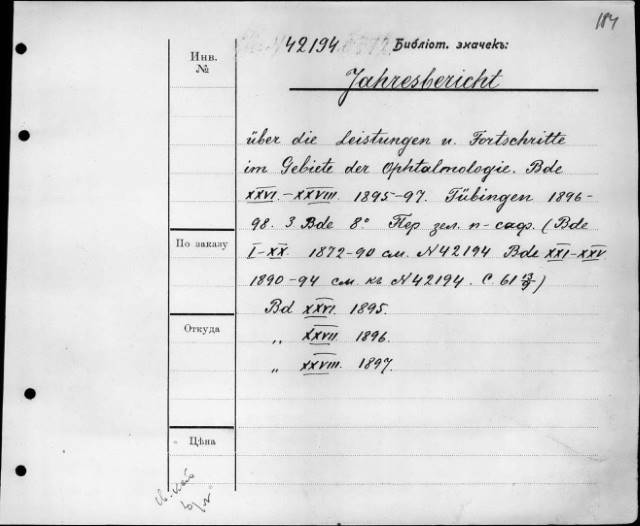 184
Инв.
№
42194
Библіот. значекъ:
Jahresbericht
über die Leistungen u. Fortschritte
im Gebiete der Ophtalmologie. Bde
XXVI.-XXVIII. 1895-97. Tübingen 1896-
98. 3 Bde 8° Пер зел. п-саф. (Bde
I-XX. 1872-90 см. N42194 Bde XXI-XXV
1890-94 см. къ N42194. С. 61
Bd XXVI. 1895.
„ XXVII 1896.
„ XXVIII. 1897.
По заказу
Откуда
Цѣна